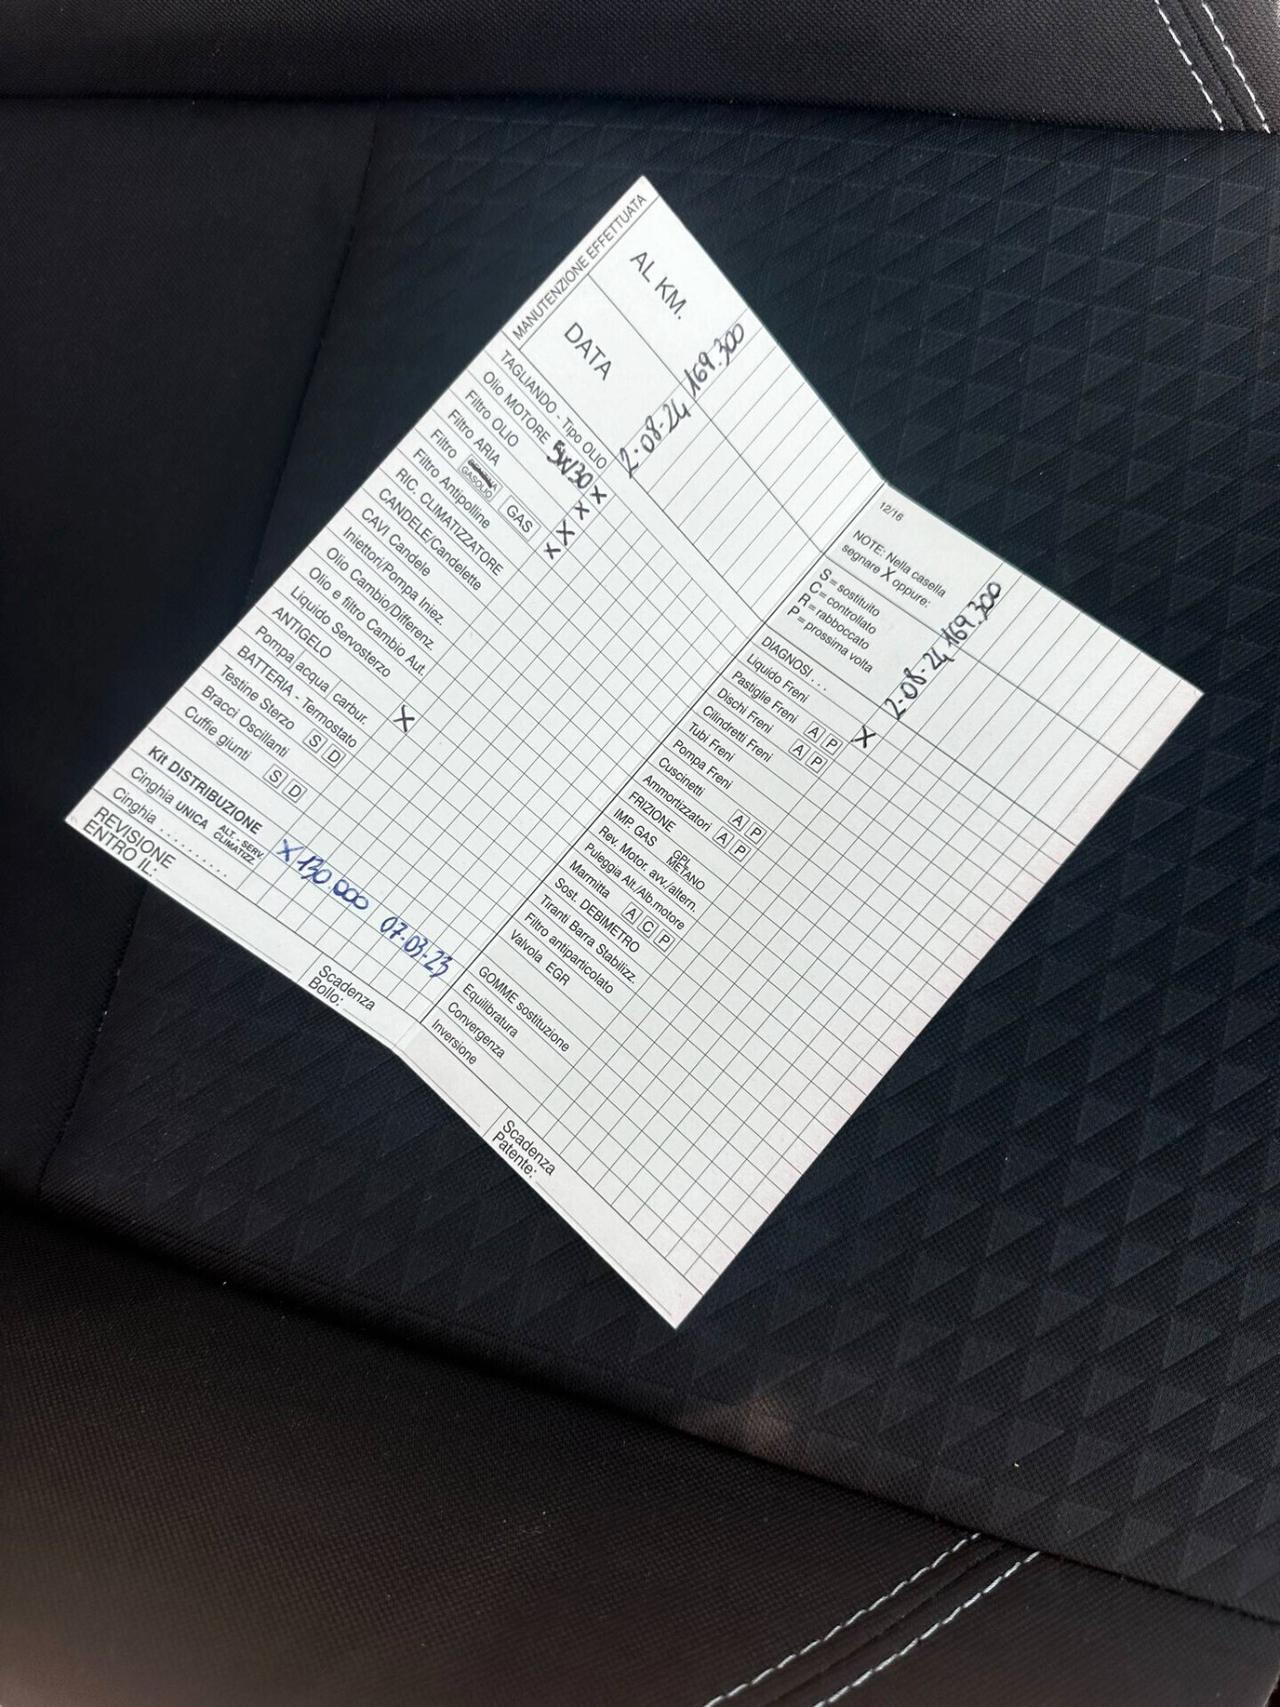 MANUTENZIONE EFFETTUATA
AL KM.
DATA
169.300
2.08.24
TAGLIANDO - Tipo OLIO
Olio MOTORE 5W30 X
Filtro OLIO X
Filtro ARIA X
Filtro GASOLIO GAS X
Filtro Antipolline
RIC. CLIMATIZZATORE
CANDELE/Candelette
CAVI Candele
Iniettori/Pompa Iniez.
Olio Cambio/Differenz.
Olio e filtro Cambio Aut.
Liquido Servosterzo
ANTIGELO
Pompa acqua carbur.
BATTERIA - Termostato X
Testine Sterzo S D
Bracci Oscillanti
Cuffie giunti S D
Kit DISTRIBUZIONE X 130 000 07-03-23
Cinghia UNICA ALT. - SERV. CLIMATIZZ.
Cinghia .........
REVISIONE
ENTRO IL:
Scadenza
Bollo:
12/16
NOTE: Nella casella
segnare X oppure:
S = sostituito
C = controllato
R = rabboccato
P = prossima volta
2-08-24 169.300
DIAGNOSI . . .
Liquido Freni
Pastiglie Freni A P X
Dischi Freni A P
Cilindretti Freni
Tubi Freni
Pompa Freni
Cuscinetti A P
Ammortizzatori A P
FRIZIONE
IMP. GAS GPL METANO
Rev. Motor. avv./altern.
Puleggia Alt./Alb.motore
Marmitta A C P
Sost. DEBIMETRO
Tiranti Barra Stabilizz.
Filtro antiparticolato
Valvola EGR
GOMME sostituzione
Equilibratura
Convergenza
Inversione
Scadenza
Patente: